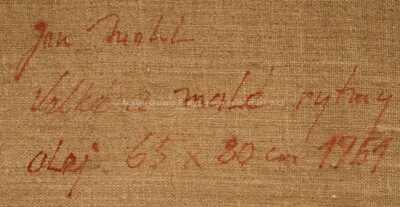 Jan
Velké a malé rytmy
olej. 65 x 80 cm 1961